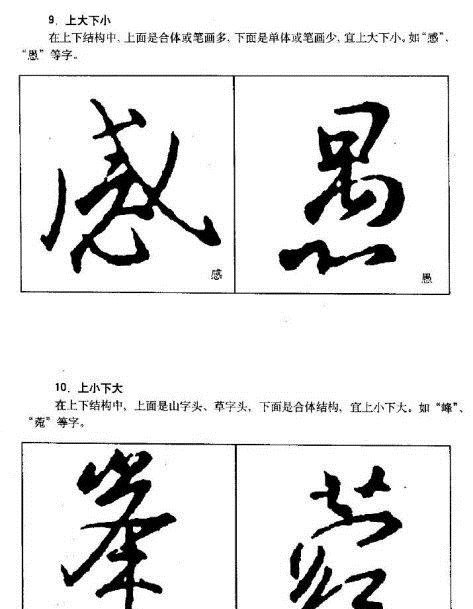 9. 上大下小
在上下结构中, 上面是合体或笔画多, 下面是单体或笔画少, 宜上大下小。如“感”、
“愚”等字。
感 愚
感 愚
10. 上小下大
在上下结构中, 上面是山字头、草字头, 下面是合体结构、宜上小下大。如“峰”、
“菀”等字。
峯